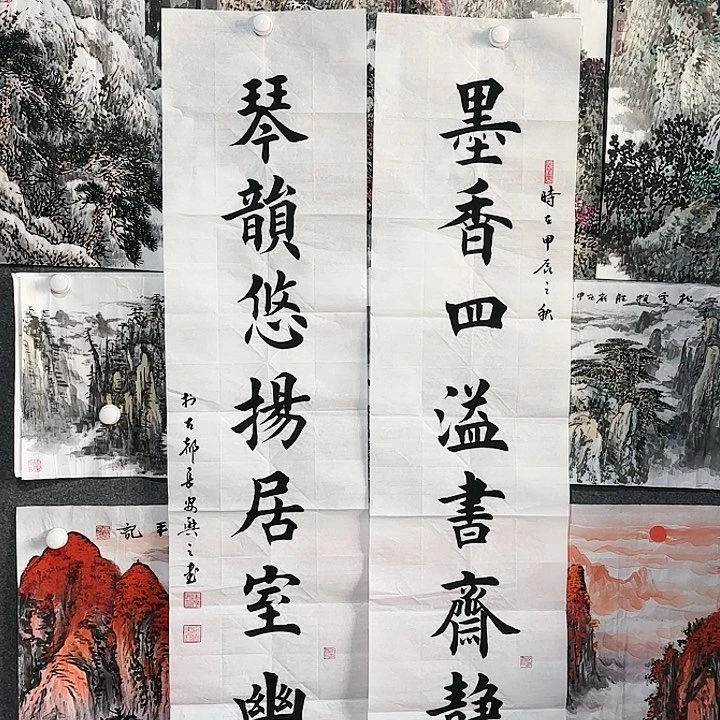 墨香四溢書齋静
時在甲辰之秋
琴韻悠揚居室幽
於古都長安興之書